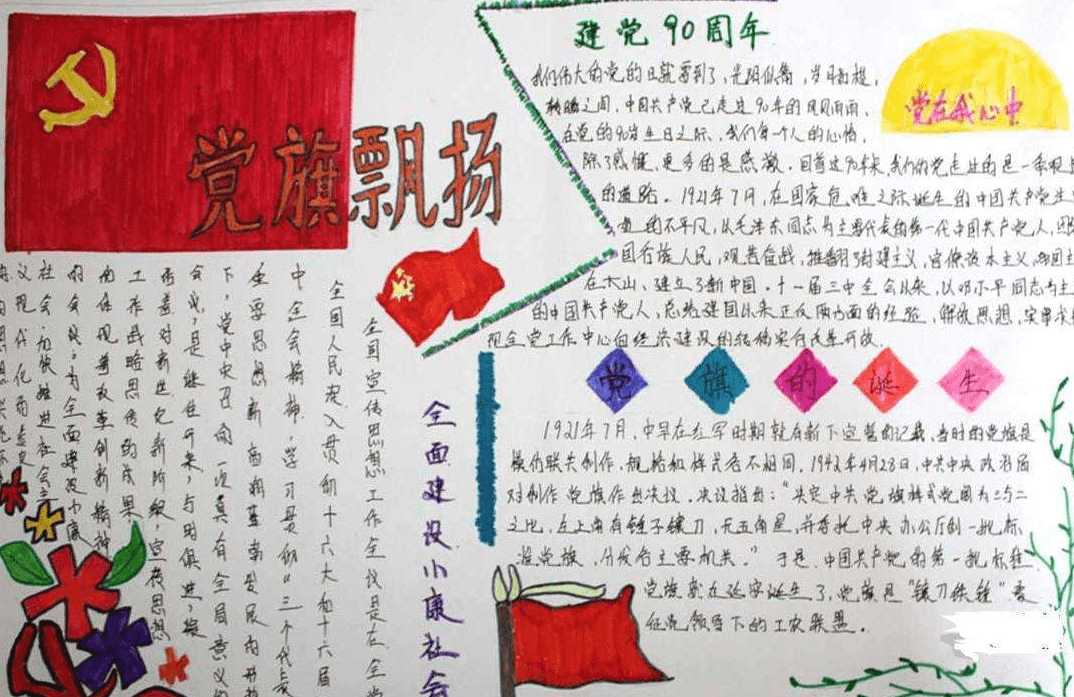 党旗飘扬
建党90周年
党在我心中
我们伟大的党的日就要到了,光阴似箭,岁月如梭,
转瞬之间,中国共产党已走过90年的风风雨雨,
在党的90岁生日之际,我们每一个人的心情,
除了感慨,更多的是感激。回首这90年来,我们的党走过的是一条
的道路。1921年7月,在国家危难之际诞生的中国共产党
的不平凡,从毛泽东同志为主要代表的第一代中国共产党人,团
国各族人民,艰苦奋战,推翻了封建主义,官僚资本主义,帝国主
在大山,建立了新中国。十一届三中全会以来,以邓小平同志为主
的中国共产党人,总结建国以来正反两方面的经验,解放思想,实事求
现全党工作中心向经济建设的转移实行改革开放。
党旗的诞生
1921年7月,中早在红军时期就有新下宣誓的记载,当时的党旗是
模仿联共制作,规格和样式各不相同。1942年4月28日,中共中央政治局
对制作党旗作出决议。决议指出:“决定中共党旗样式宽阔为三与二
之比,左上角有锤子镰刀,无五角星,并委托中央办公厅制一批标
准党旗,分发各主要机关。”于是,中国共产党的第一批标准
党旗就在延安诞生了,党旗是“镰刀铁锤”象
征党领导下的工农联盟。
全面建设小康社会
全国宣传思想工作全议是在全党
全国人民深入贯彻十六大和十六届
中全会精神,学习贯彻“三个代表
重要思想新高潮蓬勃发展的形势
下,党中央召开的一次具有全局意义的
会议,是继往开来,与时俱进,
着对新世纪新阶段,宣传思想
工作战略思考的成果
的体现着改革创新精神
的会议,为全面建设小康
社会,加快推进社会主
义现代化